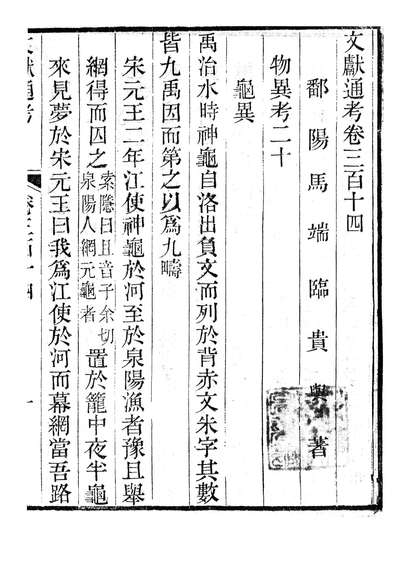 文獻通考卷三百十四
鄱陽馬端臨貴與著
物異考二十
龜異
禹治水時神龜自洛出負文而列於背赤文朱字其數
皆九禹因而第之以爲九疇
宋元王二年江使神龜於河至於泉陽漁者豫且舉
網得而囚之索隱曰且音子余切泉陽人網元龜者置於籠中夜半龜
來見夢於宋元王曰我爲江使於河而幕網當吾路
文獻通考
卷三百十四
一